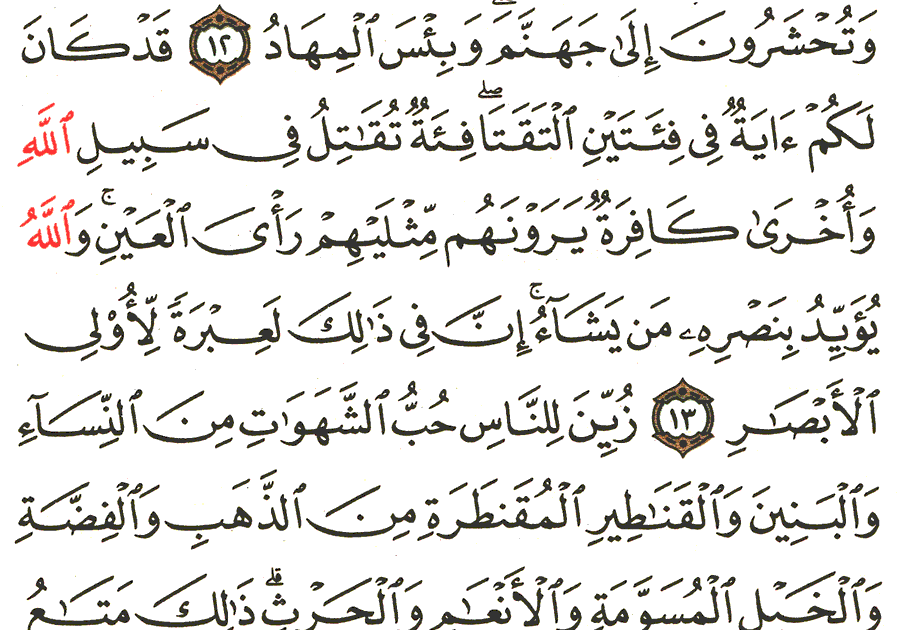 وَتُحْشَرُونَ إِلَىٰ جَهَنَّمَ ۖ وَبِئْسَ ٱلْمِهَادُ ١٢ قَدْ كَانَ
لَكُمْ ءَايَةٌ فِى فِئَتَيْنِ ٱلْتَقَتَا ۖ فِئَةٌ تُقَٰتِلُ فِى سَبِيلِ ٱللَّهِ
وَأُخْرَىٰ كَافِرَةٌ يَرَوْنَهُم مِّثْلَيْهِمْ رَأْىَ ٱلْعَيْنِ ۚ وَٱللَّهُ
يُؤَيِّدُ بِنَصْرِهِۦ مَن يَشَآءُ ۚ إِنَّ فِى ذَٰلِكَ لَعِبْرَةً لِّأُو۟لِى
ٱلْأَبْصَٰرِ ١٣ زُيِّنَ لِلنَّاسِ حُبُّ ٱلشَّهَوَٰتِ مِنَ ٱلنِّسَآءِ
وَٱلْبَنِينَ وَٱلْقَنَٰطِيرِ ٱلْمُقَنطَرَةِ مِنَ ٱلذَّهَبِ وَٱلْفِضَّةِ
وَٱلْخَيْلِ ٱلْمُسَوَّمَةِ وَٱلْأَنْعَٰمِ وَٱلْحَرْثِ ۗ ذَٰلِكَ مَتَٰعُ